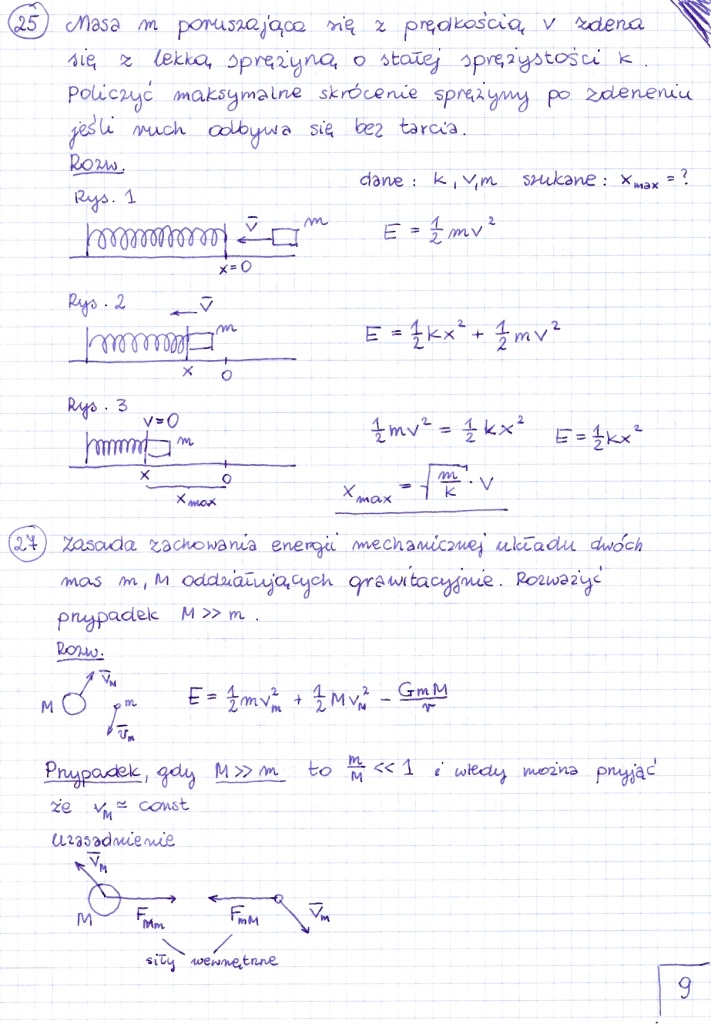 25 Masa m poruszająca się z prędkością v zdeża
się z lekką sprężyną o stałej sprężystości k.
Policzyć maksymalne skrócenie sprężyny po zdeżeniu
jeśli ruch odbywa się bez tarcia.
Rozw.
dane: k, v, m szukane: x_max = ?
Rys. 1
v̄ m
E = 1/2 mv²
x=0
Rys. 2 v̄
m
E = 1/2 kx² + 1/2 mv²
x 0
Rys. 3
v=0
m
1/2 mv² = 1/2 kx² E = 1/2 kx²
x 0
x_max
x_max = √(m/k) · v
27 Zasada zachowania energii mechanicznej układu dwóch
mas m, M oddziałujących grawitacyjnie. Rozważyć
przypadek M >> m.
Rozw.
M v̄_M m v̄_m
E = 1/2 mv_m² + 1/2 Mv_M² - GmM/r
Przypadek, gdy M >> m to m/M << 1 i wtedy można przyjąć
że v_M ≈ const
Uzasadnienie
v̄_M
M F_Mm F_mM v̄_m
siły wewnętrzne
9